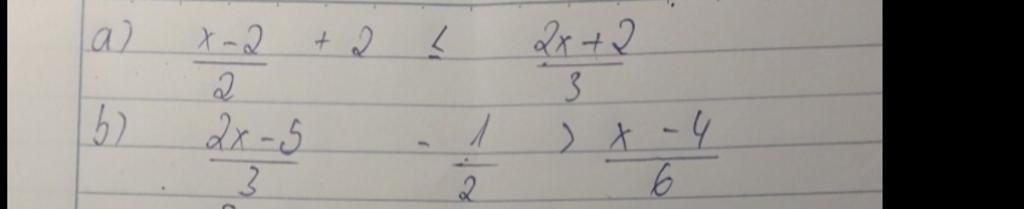 a) x-2/2 + 2 ≤ 2x+2/3
b) 2x-5/3 - 1/2 > x-4/6